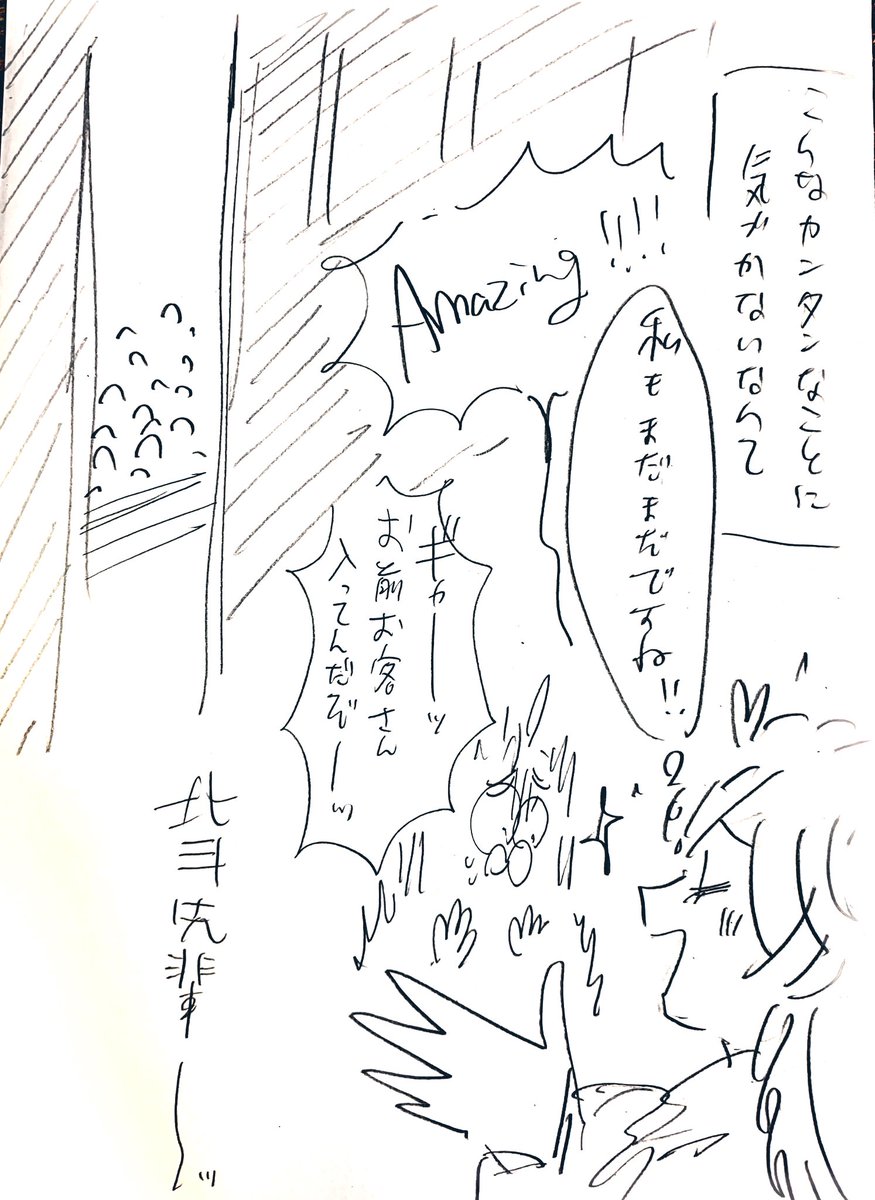 こんなカンタンなことに
気づかないなんて
私もまだまだですね!!
Amazing!!!!
ギャーーッ
お前お客さん
入ってんだぞーッ
先輩〜ッ